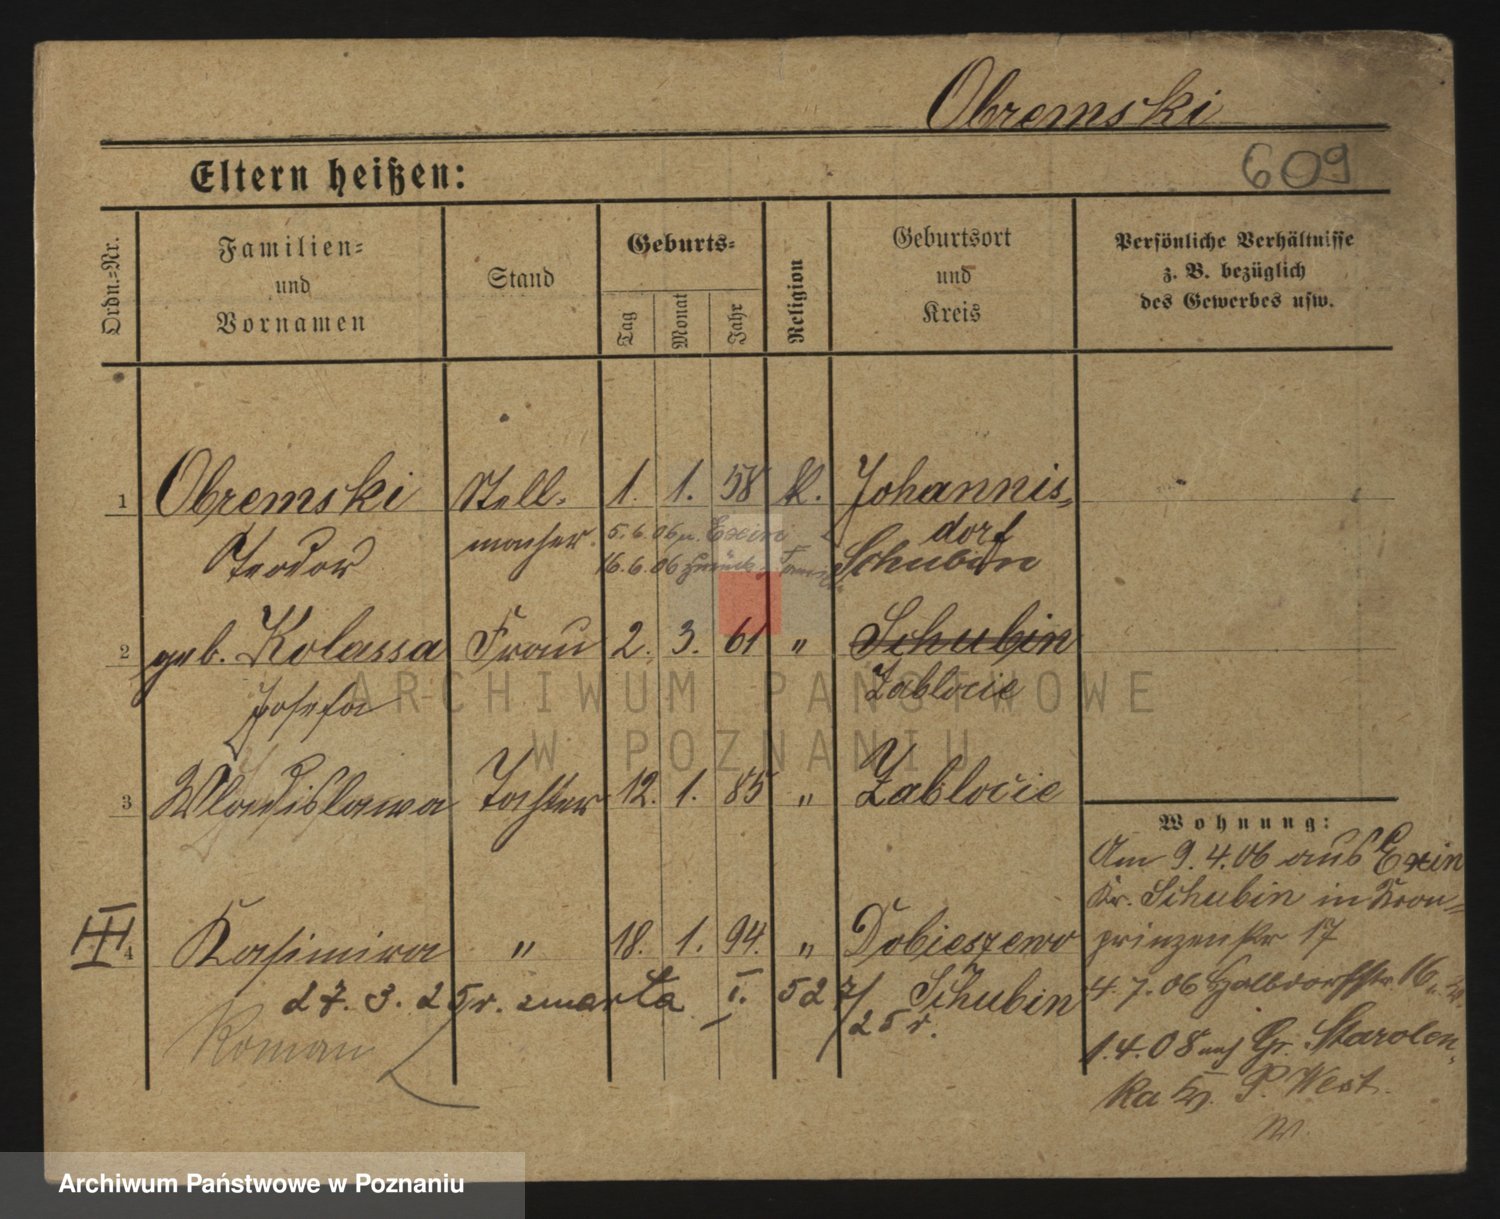 Obremski
609
Eltern heißen:
Ordn.=Nr.
Familien=
und
Vornamen
Stand
Geburts=
Tag
Monat
Jahr
Religion
Geburtsort
und
Kreis
Persönliche Verhältnisse
z. B. bezüglich
des Gewerbes usw.
1 Obremski Stell= 1. 1. 58 k. Johannis=
dorf
Teodor macher. 5.6.06 n. Exin Schubin
16.6.06 zurück
2 geb. Kolassa Frau 2. 3. 61 " Schubin
Josefa Zablocie
3 Wladislawa Tochter 12. 1. 85 " Zablocie
III 4 Kasimira " 18. 1. 94. " Dobieszewo
27. 3. 25 r. zmarła I. 527/25 r. Schubin
Roman
Wohnung:
Am 9.4.06 aus Exin
Kr. Schubin in Kron=
prinzenstr 17
4.7.06 Halbdorfstr. 16
1.4.08 nach Gr. Starolen=
ka Kr. P. West.
ARCHIWUM PAŃSTWOWE
W POZNANIU
Archiwum Państwowe w Poznaniu